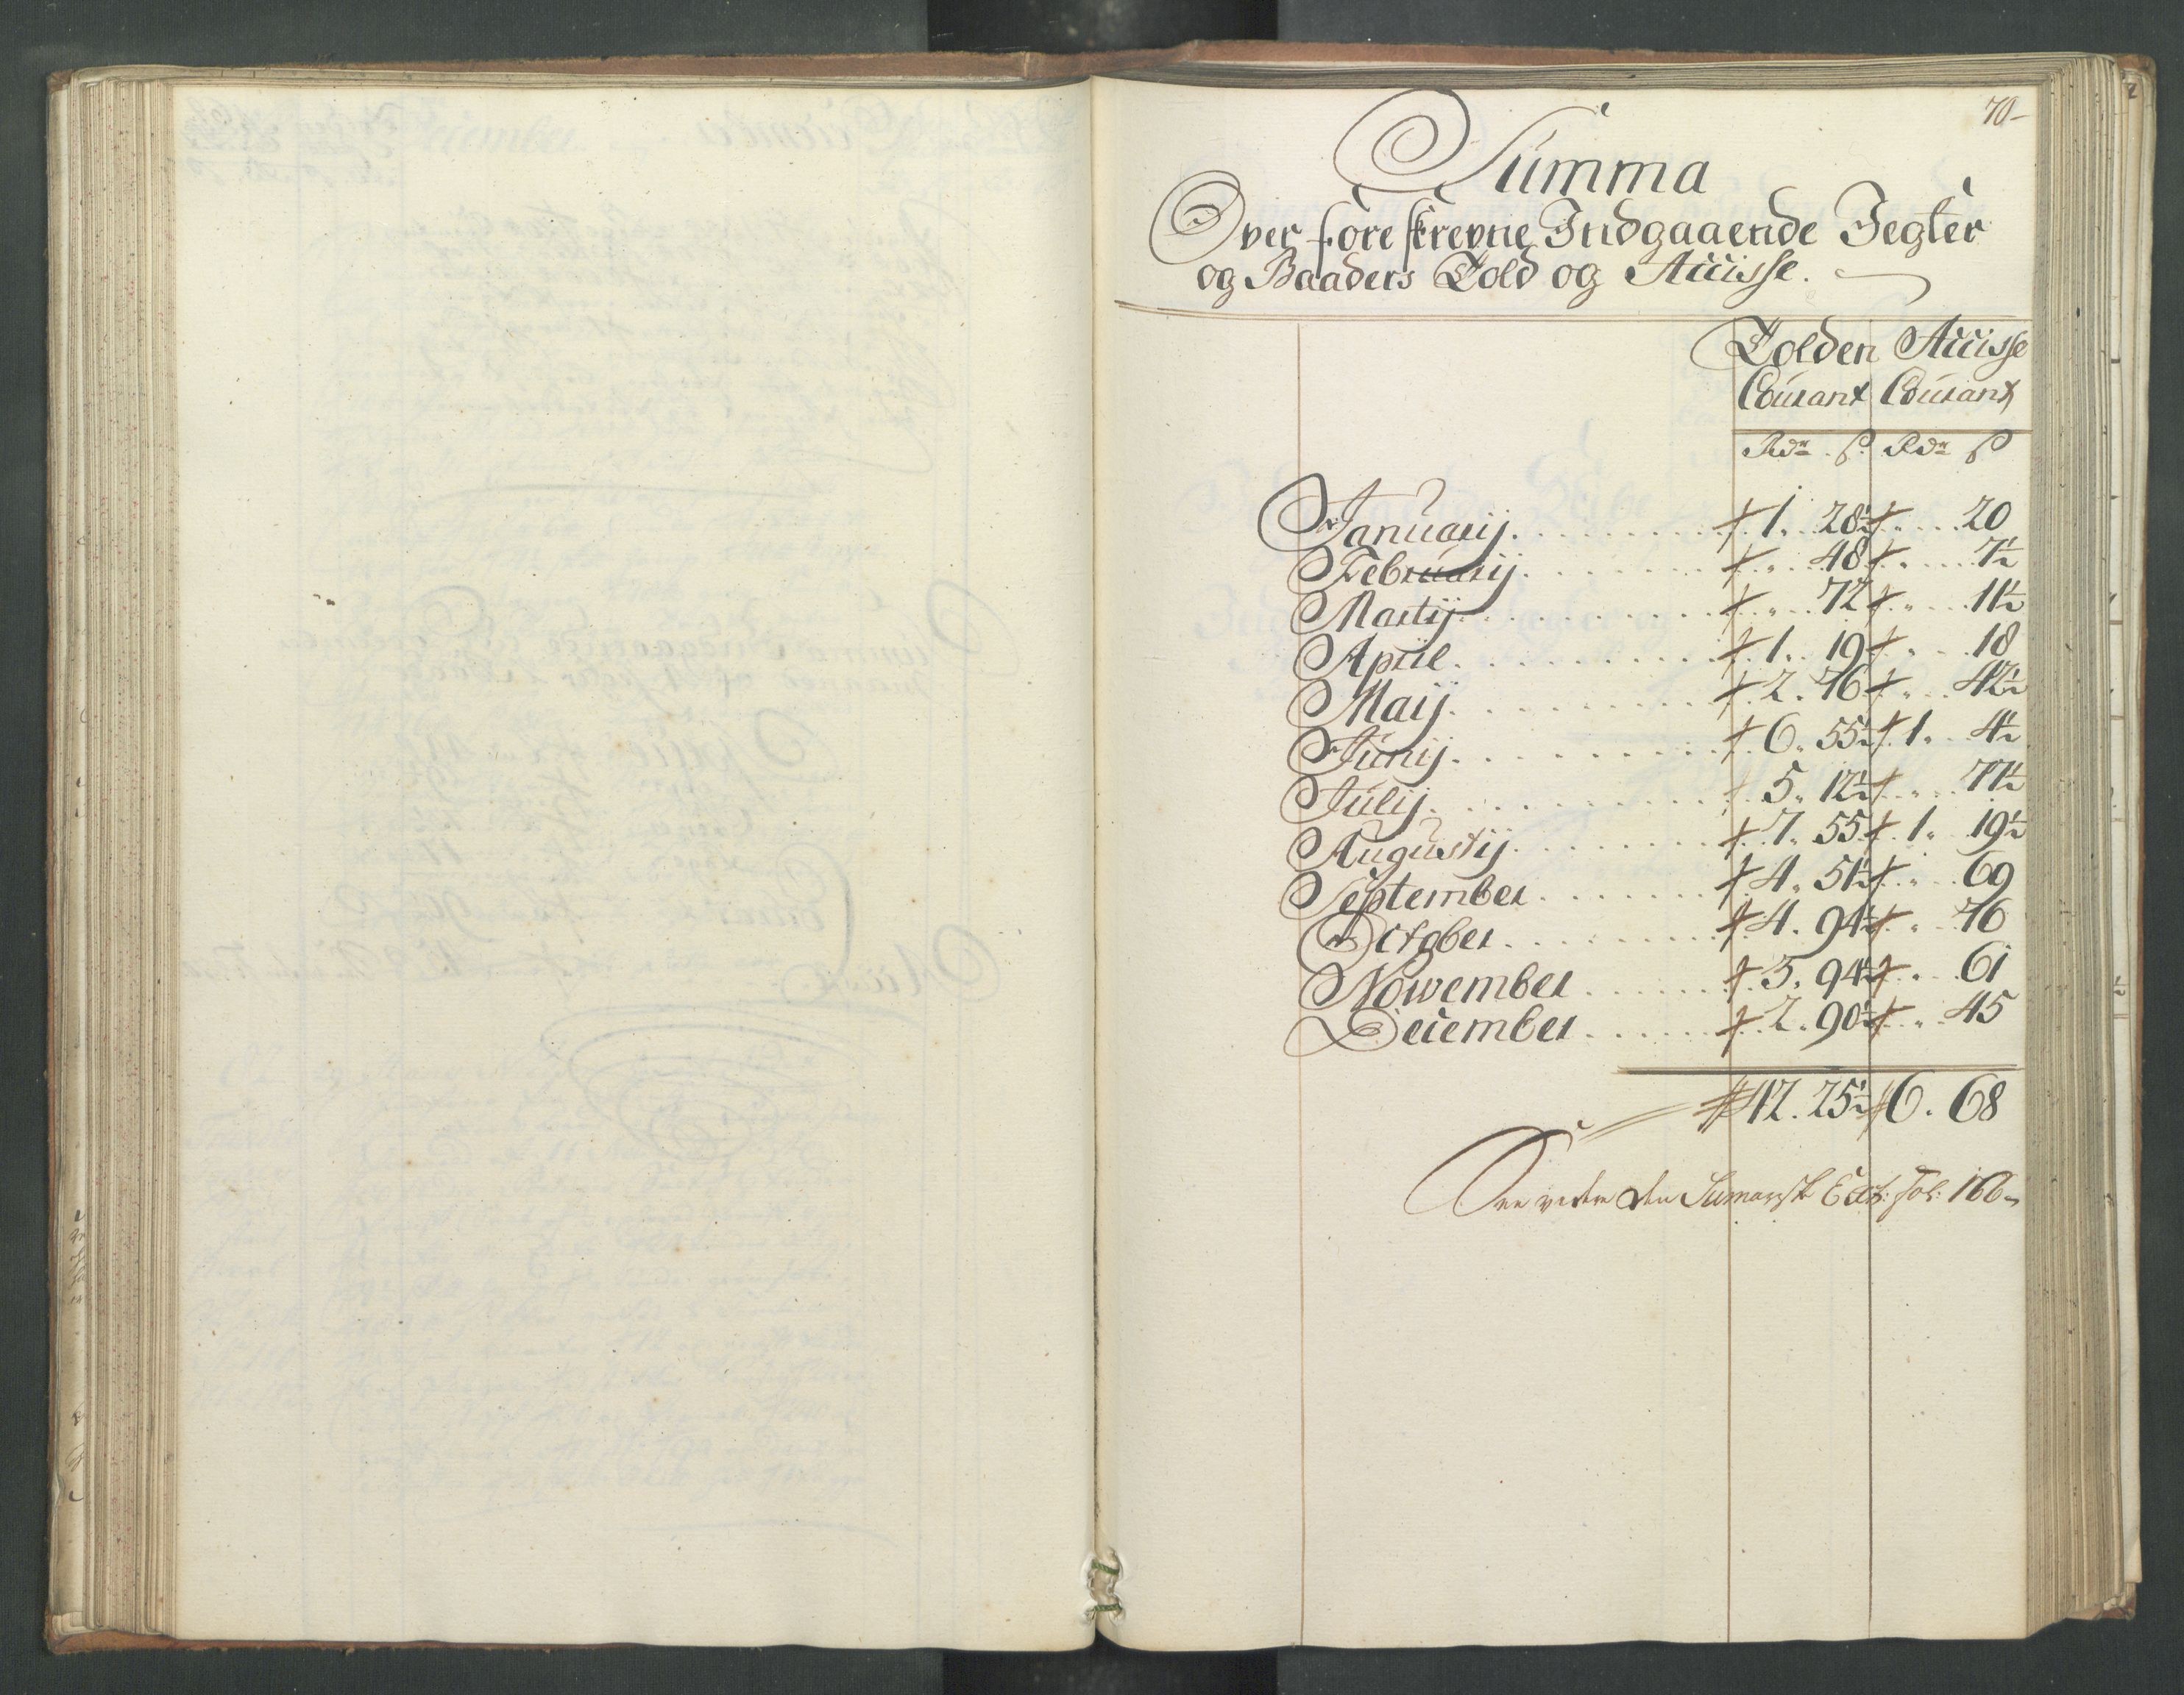 70-
Summa
Over foreskrevne Indgaaende Jegter
og Baaders Told og Accisse.
Tolden Accisse
Courant Courant
Rdr. ß. Rdr. ß
Januarij. 1. 28½ 20
Februarij. 48 7½
Martij. 72 11½
April. 1. 19 18
Maij. 2. 76 42½
Junij. 6. 55½ 1. 4½
Julij. 5. 12½ 77½
Augustij. 7. 55 1. 19½
September 4. 51½ 69
October. 4. 94½ 76
Nowember 3. 94½ 61
December 2. 90½ 45
42. 25½ 6. 68
See videre den Sumarisk Extr: Fol: 166